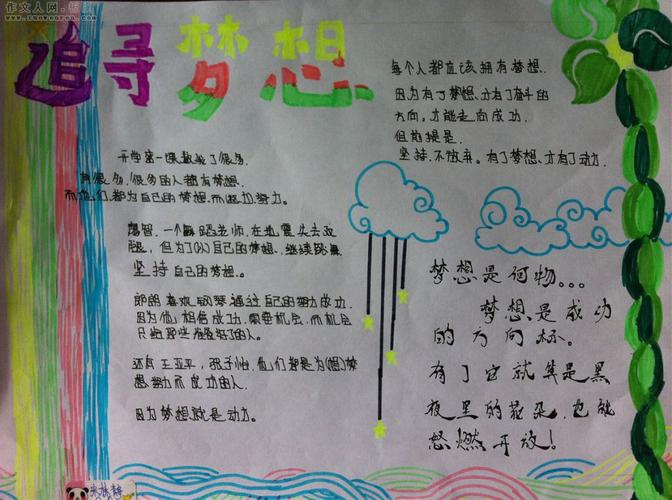 作文人网
www.zuowenren.com
追寻梦想
每个人都应该拥有梦想.
因为有了梦想,才有了奋斗的
方向,才能走向成功.
但前提是.
坚持.不放弃.有了梦想.才有了动力.
开学第一课教会了很多.
有很多,很多的人拥有梦想.
而他们都为自己的梦想.而努力.
一个舞蹈老师,在地震失去双
腿,但为了自己的梦想.继续跳舞
坚持自己的梦想。
郎朗喜欢钢琴通过自己的努力成功.
因为他相信成功.需要机会.而机会
只给那些准备好了的人.
还有王亚平,他们都是为梦
想努力而成功的人.
因为梦想就是动力。
梦想是何物...
梦想是成功
的方向标。
有了它就算是黑
夜里的花朵,也能
怒燃开放!